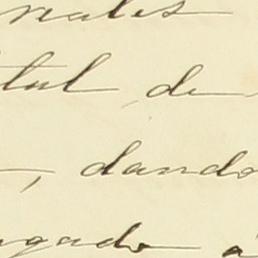 reales
tal de
, dando
gado á